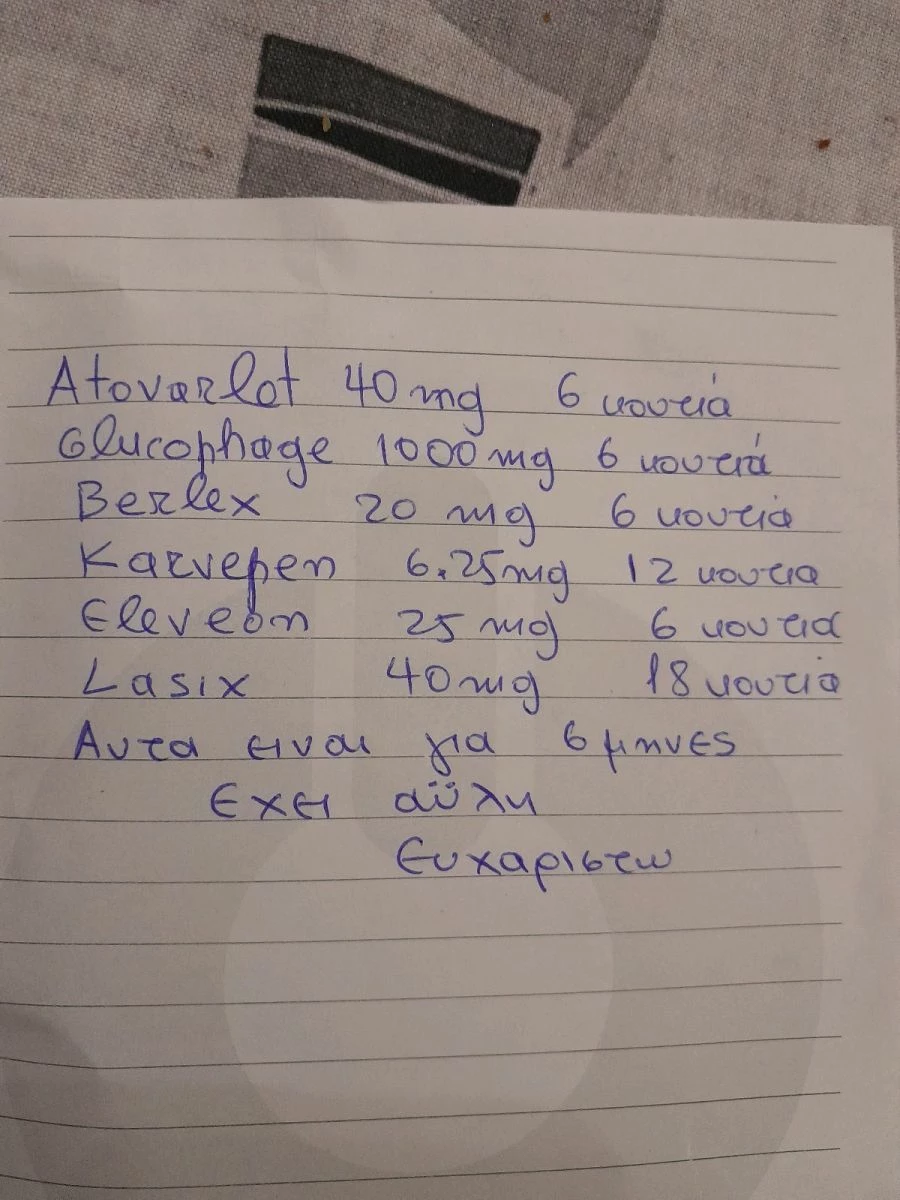 Atovarlot 40 mg 6 κουτιά
Glucophage 1000 mg 6 κουτιά
Berlex 20 mg 6 κουτιά
Karvepen 6.25 mg 12 κουτια
Eleveon 25 mg 6 κουτια
Lasix 40 mg 18 κουτια
Αυτα ειναι για 6 μηνες
Εχει αϋλη
Ευχαριστω